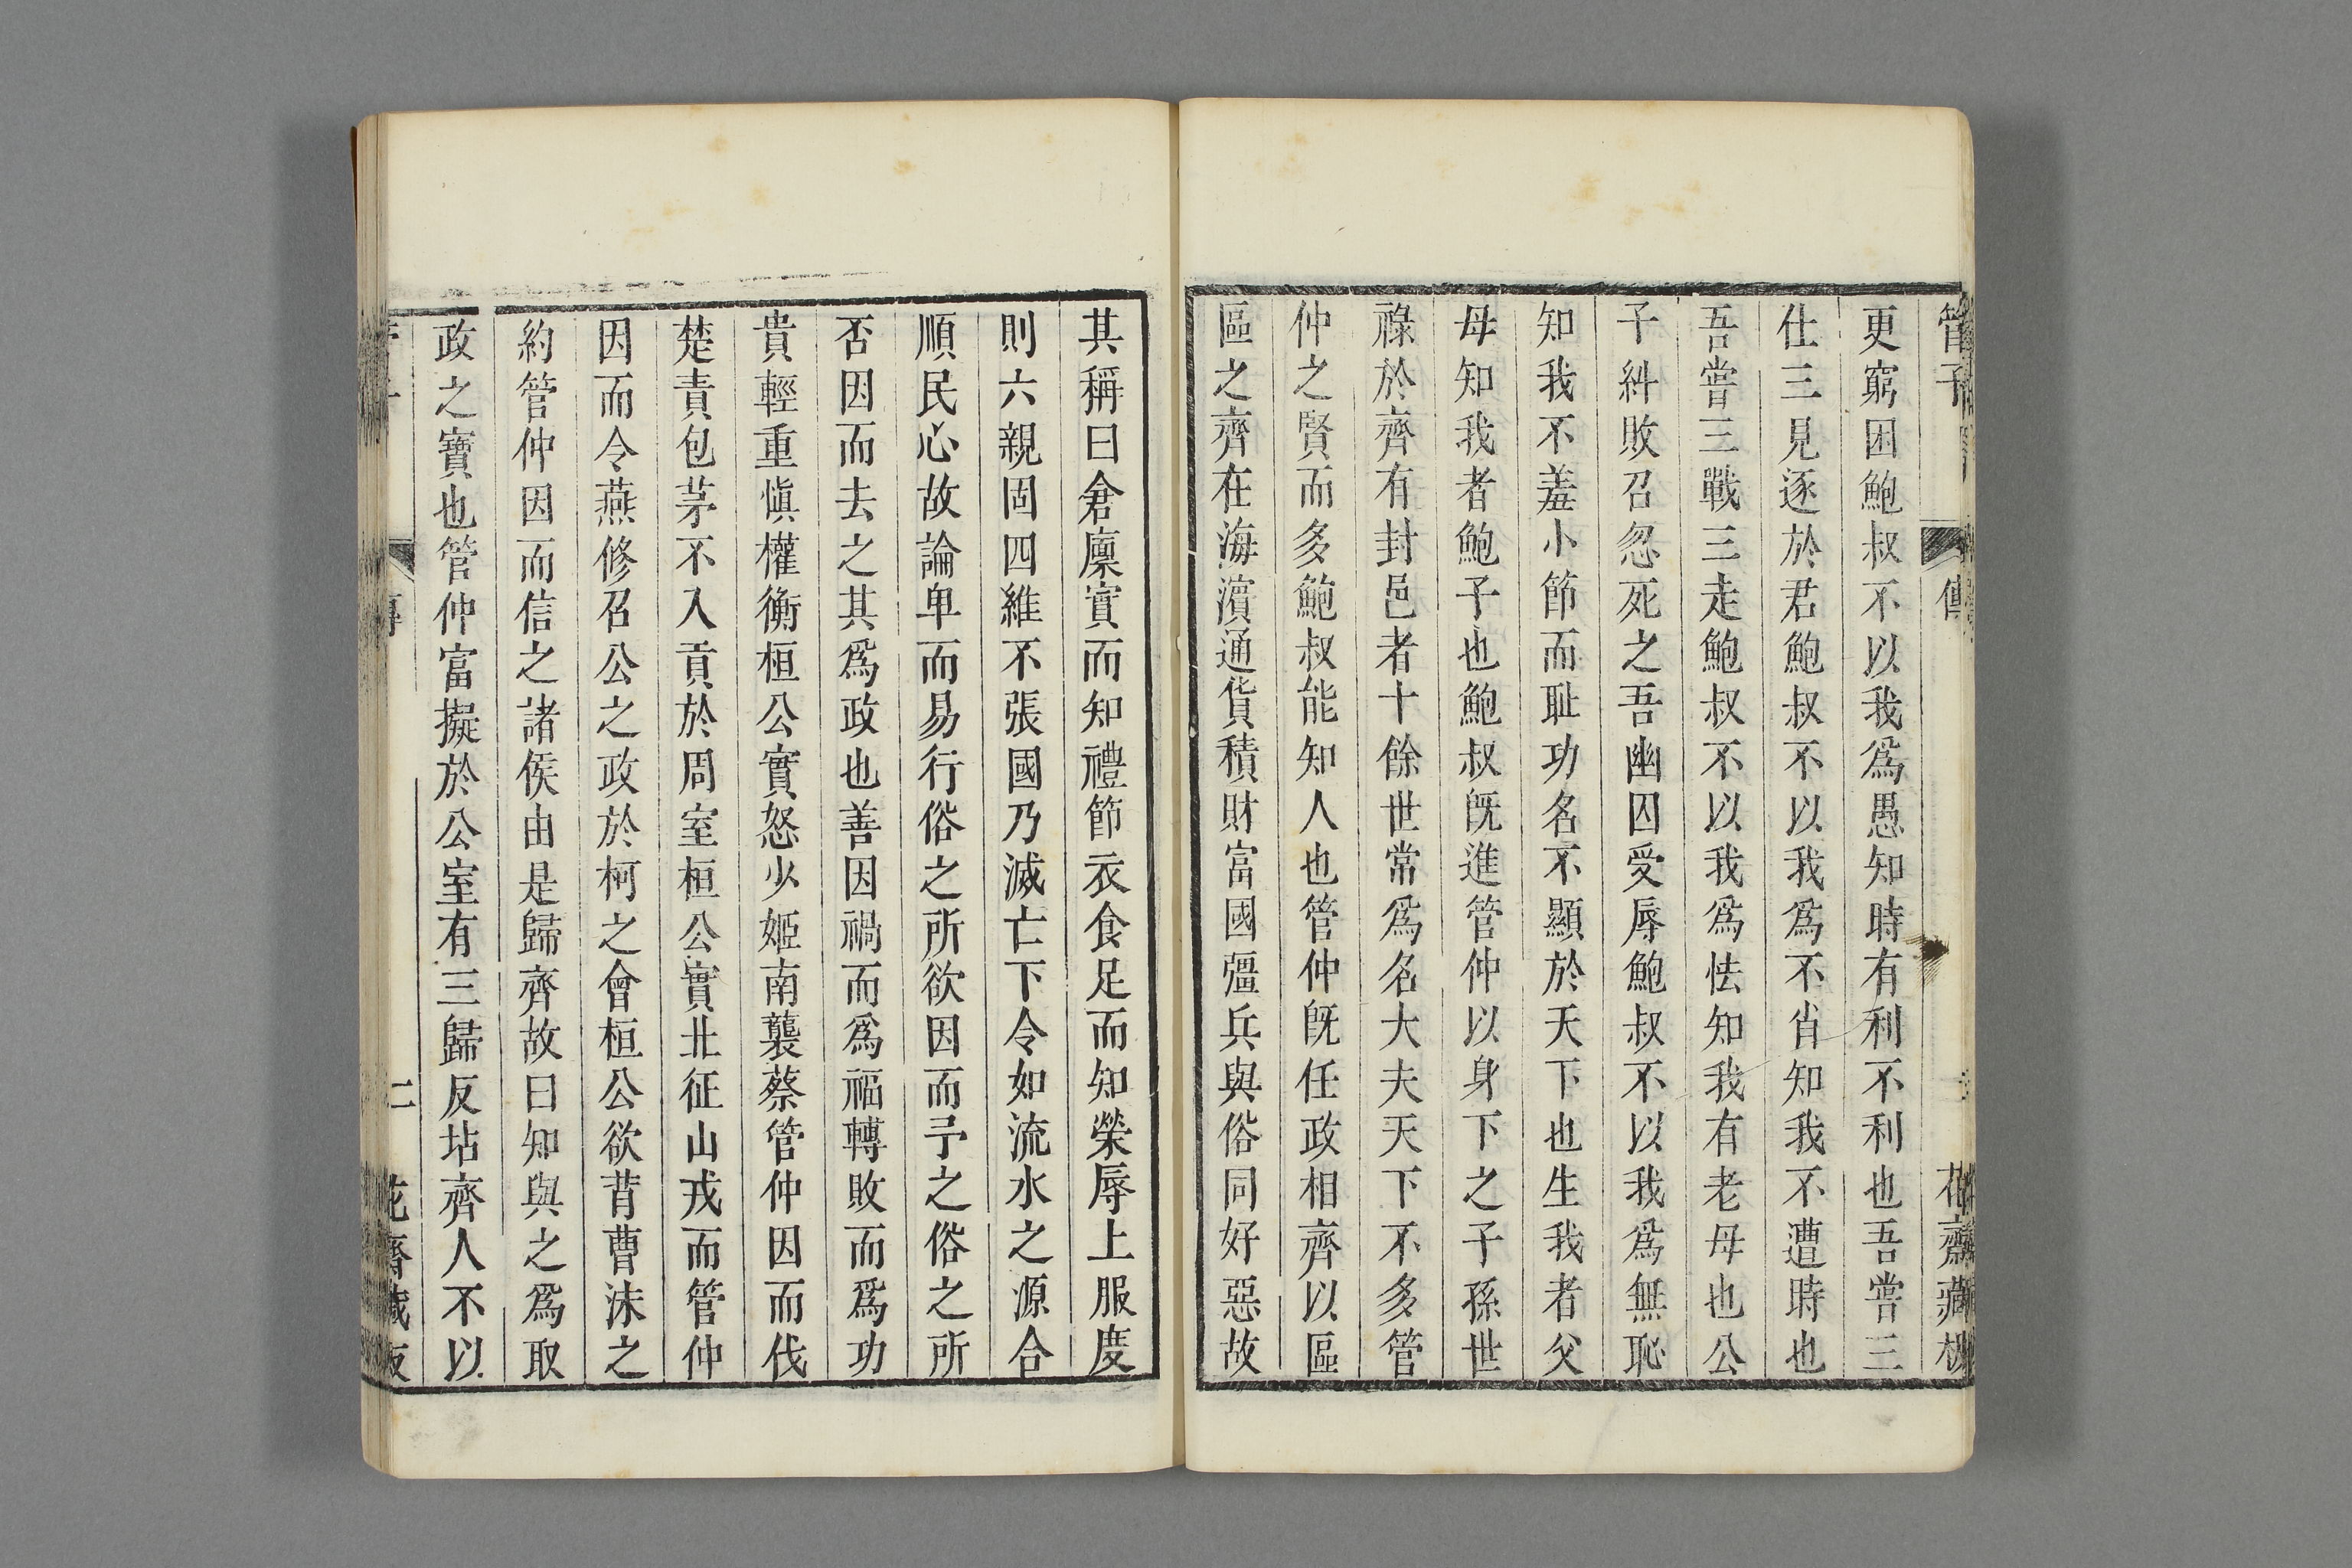 管子 傳 花齋藏板
更窮困鮑叔不以我爲愚知時有利不利也吾嘗三
仕三見逐於君鮑叔不以我爲不肖知我不遭時也
吾嘗三戰三走鮑叔不以我爲怯知我有老母也公
子糾敗召忽死之吾幽囚受辱鮑叔不以我爲無恥
知我不羞小節而耻功名不顯於天下也生我者父
母知我者鮑子也鮑叔旣進管仲以身下之子孫世
祿於齊有封邑者十餘世常爲名大夫天下不多管
仲之賢而多鮑叔能知人也管仲旣任政相齊以區
區之齊在海濱通貨積財富國彊兵與俗同好惡故
其稱曰倉廩實而知禮節衣食足而知榮辱上服度
則六親固四維不張國乃滅亡下令如流水之源合
順民心故論卑而易行俗之所欲因而予之俗之所
否因而去之其爲政也善因禍而爲福轉敗而爲功
貴輕重愼權衡桓公實怒少姬南襲蔡管仲因而伐
楚責包茅不入貢於周室桓公實北征山戎而管仲
因而令燕修召公之政於柯之會桓公欲背曹沬之
約管仲因而信之諸侯由是歸齊故曰知與之爲取
政之寶也管仲富擬於公室有三歸反坫齊人不以
二 花齋藏板